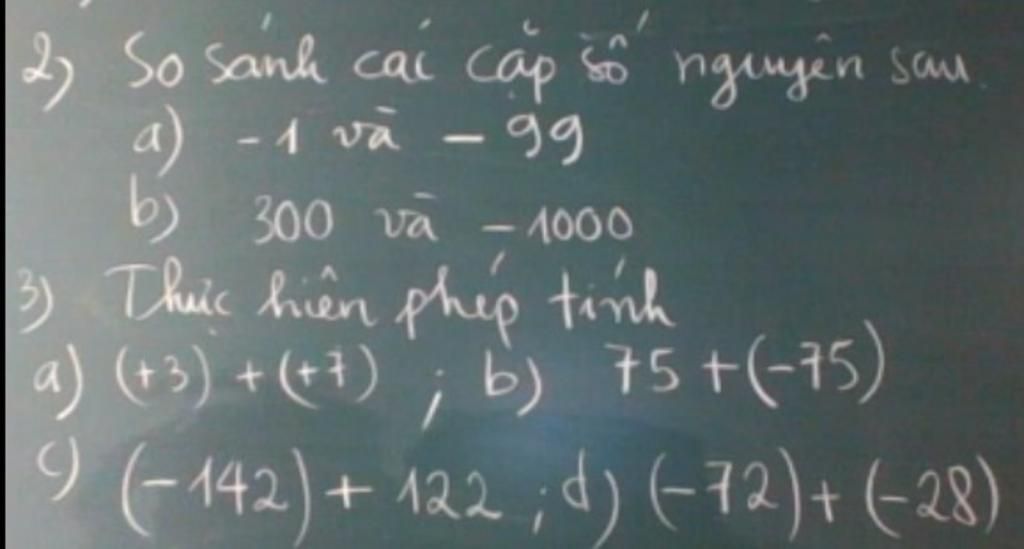 2) So sánh các cặp số nguyên sau.
a) -1 và - 99
b) 300 và - 1000
3) Thực hiện phép tính
a) (+3) + (+7) ; b) 75 + (-75)
c) (-142) + 122 ; d) (-72) + (-28)